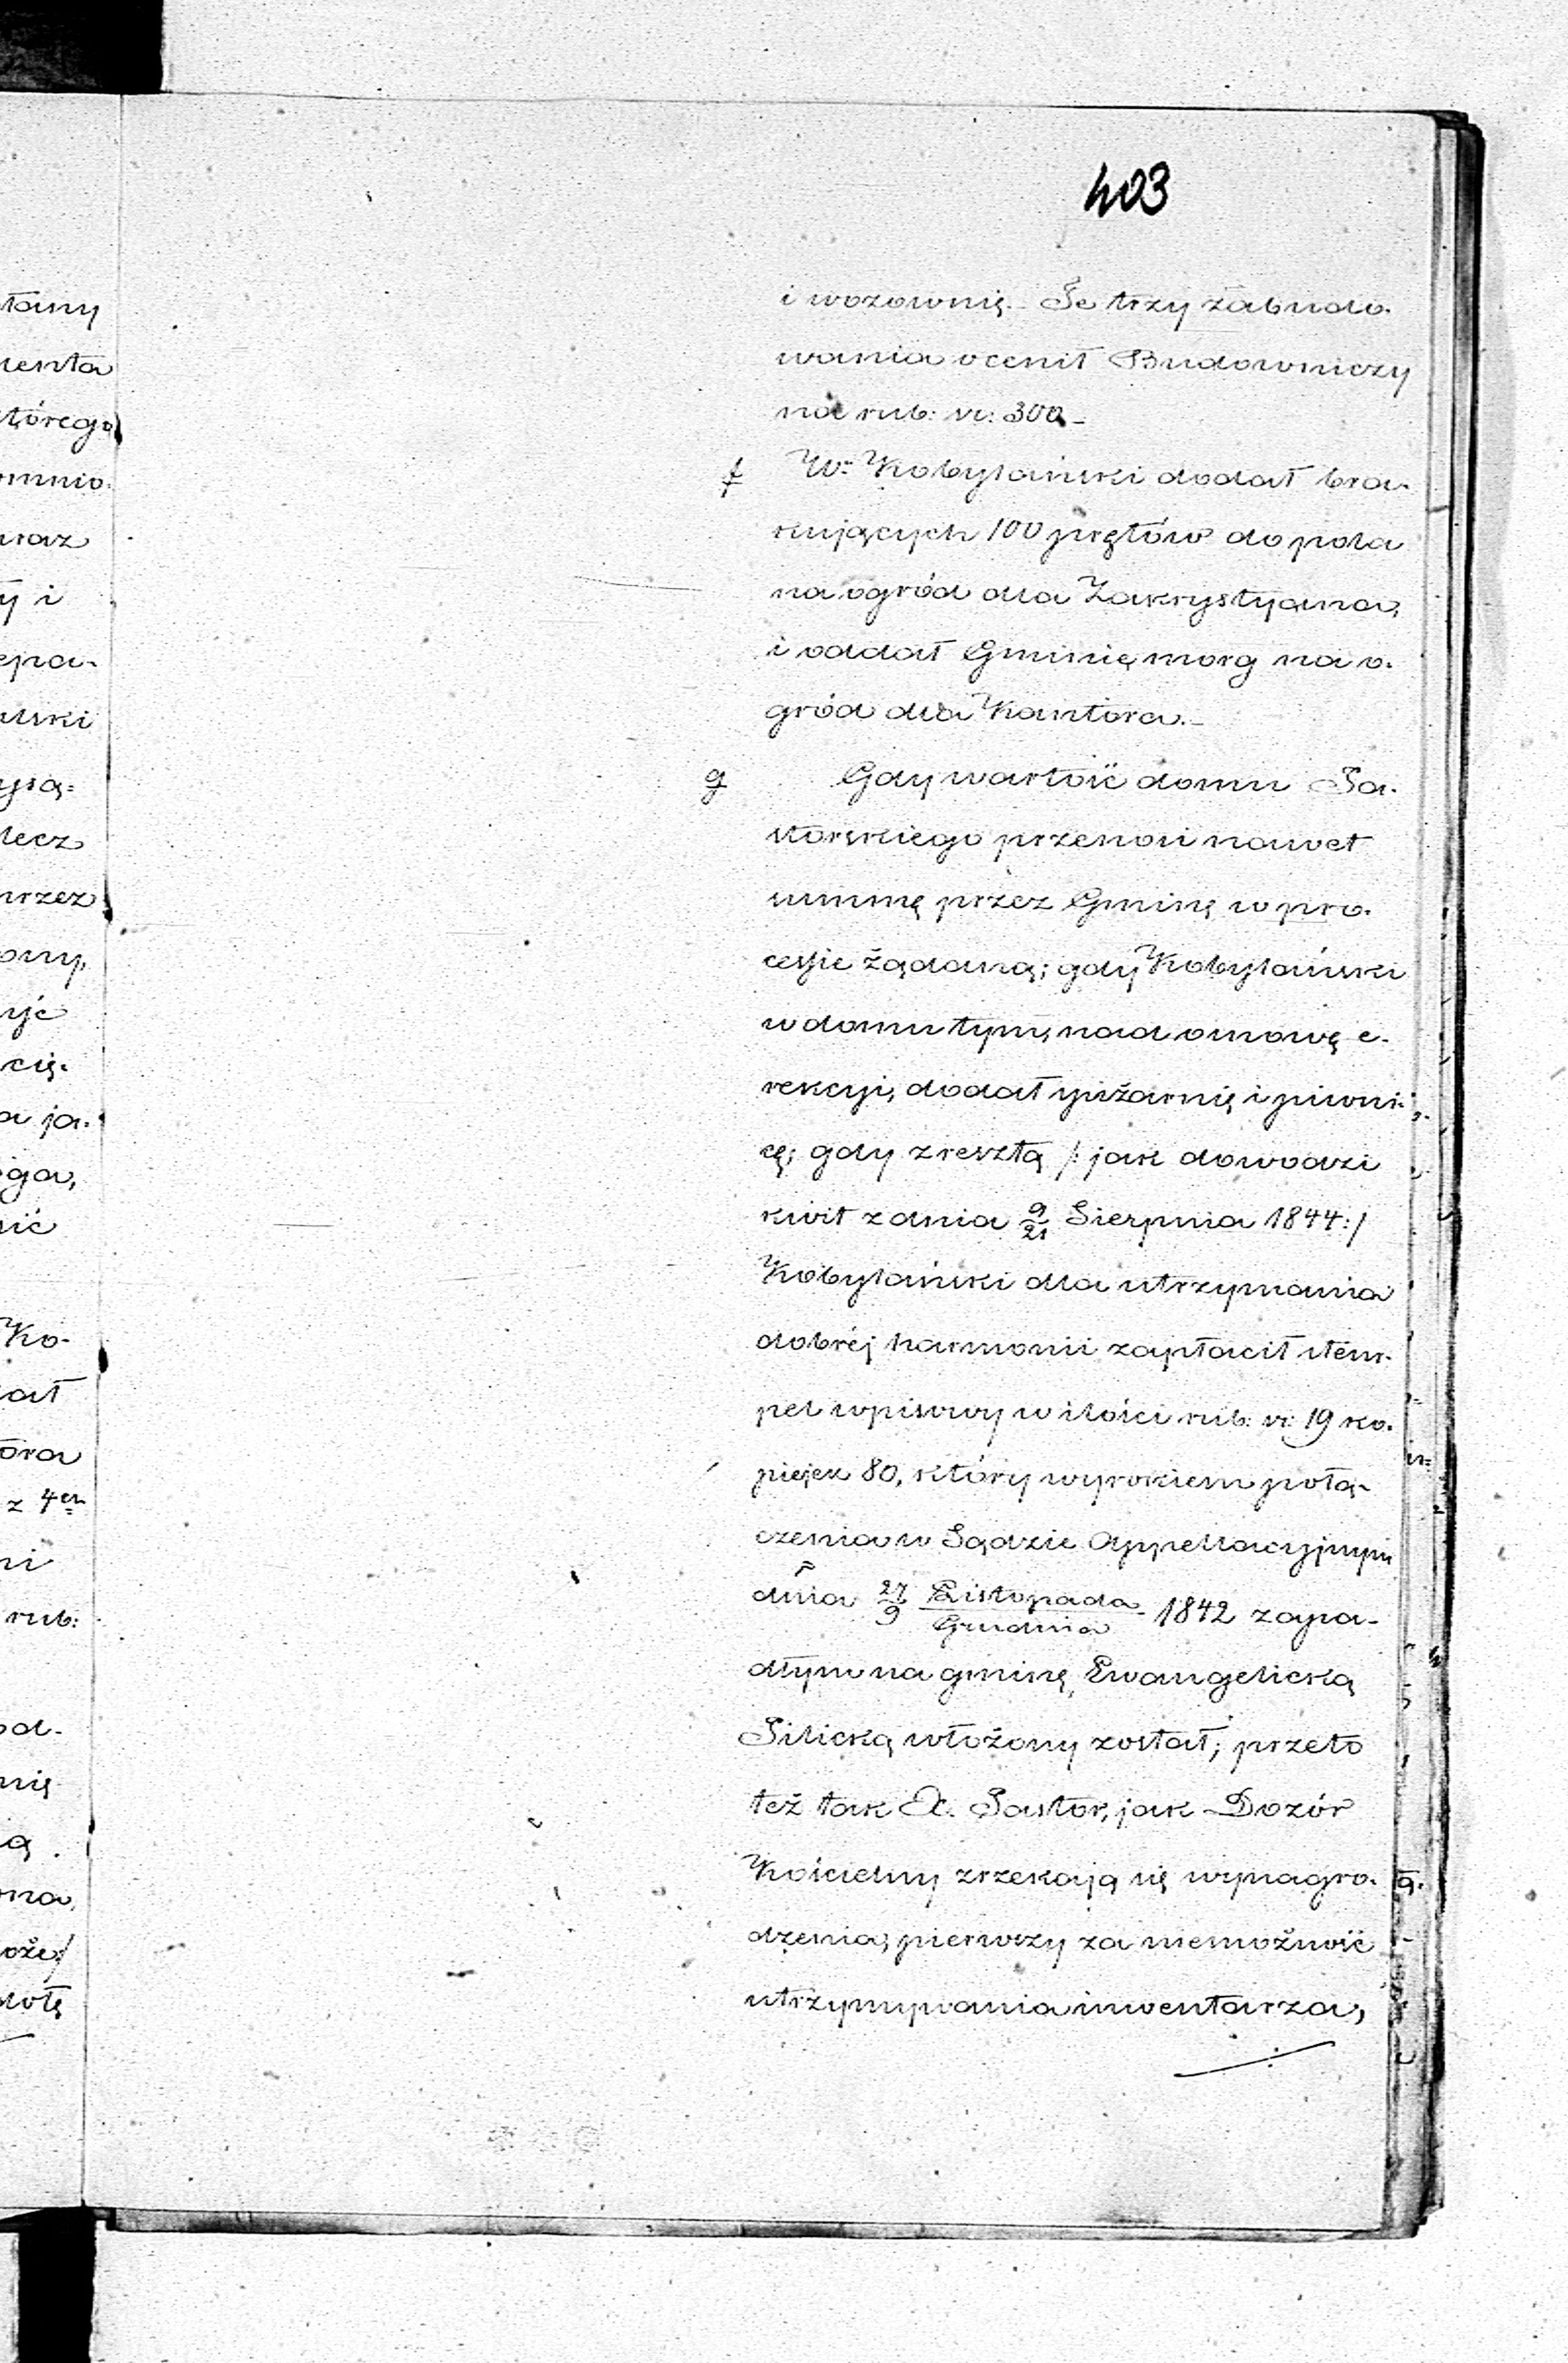 403
i wozownię. Te trzy zabudo-
wania ocenił Budowniczy
na rub: sr: 300.
f W: Kobylański dodał bra-
kujących 100 prętów do pola
na ogród dla Zakrystyana,
i oddał Gminie morg na o-
gród dla Kantora.
g Gdy wartość domu Pa-
storskiego przenosi nawet
summę przez Gminę w pro-
cessie żądaną; gdy Kobylański
w domu tym, nad osnowę e-
rekcyi, dodał spiżarnię i piwni-
cę; gdy zresztą /: jak dowodzi
kwit z dnia 9/21 Sierpnia 1844:/
Kobylański dla utrzymania
dobréj harmonii zapłacił stem-
pel wpisowy w ilości rub: sr: 19 ko-
piejek 80, który wyrokiem połą-
czenia w Sądzie Appellacyjnym
dnia 27/9 Listopada/Grudnia 1842 zapa-
dłym na gminę Ewangelicką
Pilicką włożony został; przeto
też tak X. Pastor, jak Dozór
Kościelny zrzekają się wynagro-
dzenia, pierwszy za niemożność
utrzymywania inwentarza,